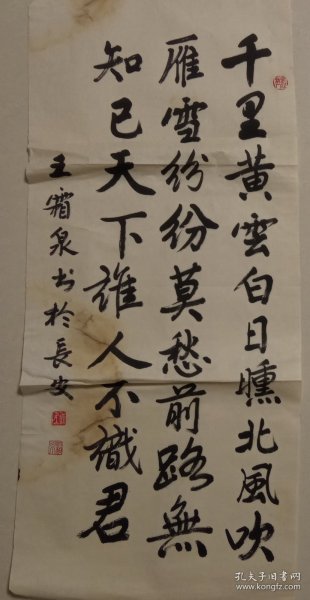 千里黄雲白日曛北風吹
雁雪紛紛莫愁前路無
知己天下誰人不識君
王霜泉书於長安
孔夫子旧书网